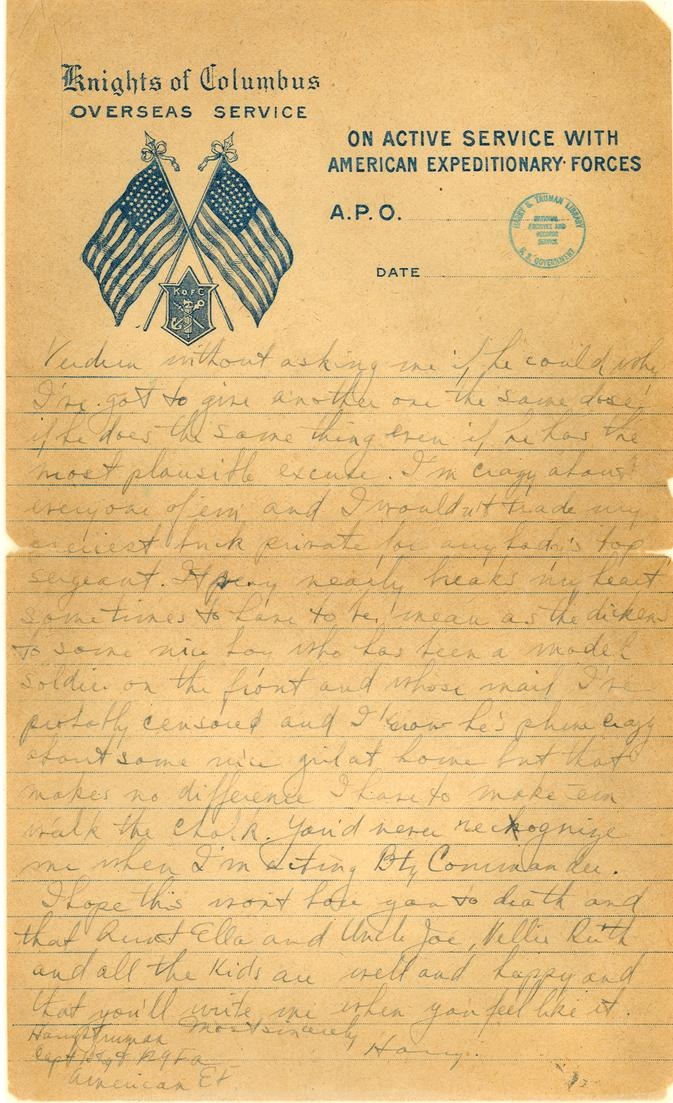 Knights of Columbus
OVERSEAS SERVICE
ON ACTIVE SERVICE WITH
AMERICAN EXPEDITIONARY FORCES
A.P.O.
HARRY S. TRUMAN LIBRARY
NATIONAL
ARCHIVES AND
RECORDS
SERVICE
U.S. GOVERNMENT
DATE
K OF C
Verdun without asking me if he could why
I've got to give another one the same dose
if he does the same thing even if he has the
most plausible excuse. I'm crazy about
everyone of em and I wouldn't trade my
buck private for anybody's top
sergeant. It very nearly breaks my heart
sometimes to have to be mean as the dickens
to some nice boy who has been a model
soldier on the front and whose mail I've
probably censored and I know he's plum crazy
about some nice girl at home but that
makes no difference I have to make em
walk the chalk. You'd never reckognize
me when I'm acting Bty Commander.
I hope this won't bore you to death and
that Aunt Ella and Uncle Joe, Nellie Ruth
and all the Kids are well and happy and
that you'll write me when you feel like it.
Most sincerely
Harry.
Harry S Truman
Capt 129 F a
American E F